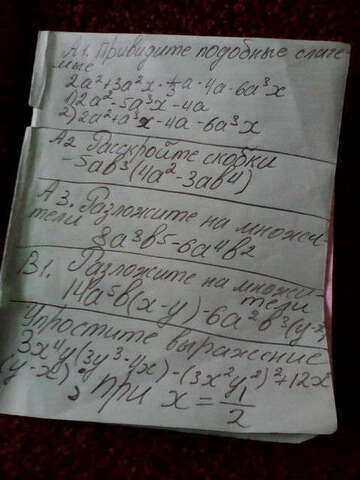 А1. Привидите подобные слаге-
мые
2a²+3a²x · ⅓a - 4a - 6a³x
1) 2a² - 5a³x - 4a
2) 2a²+a³x - 4a - 6a³x
А2 Раскройте скобки
-5ab³(4a² - 3ab⁴)
А3. Разложите на множи-
тели
8a³b⁵ - 6a⁴b²
В1. Разложите на множи-
тели
14a⁵b(x-y) - 6a²b³(y-x)
Упростите выражение
3x⁴y(3y³-4x) - (3x²y²)²+12x
(y-x), при x = 1/2